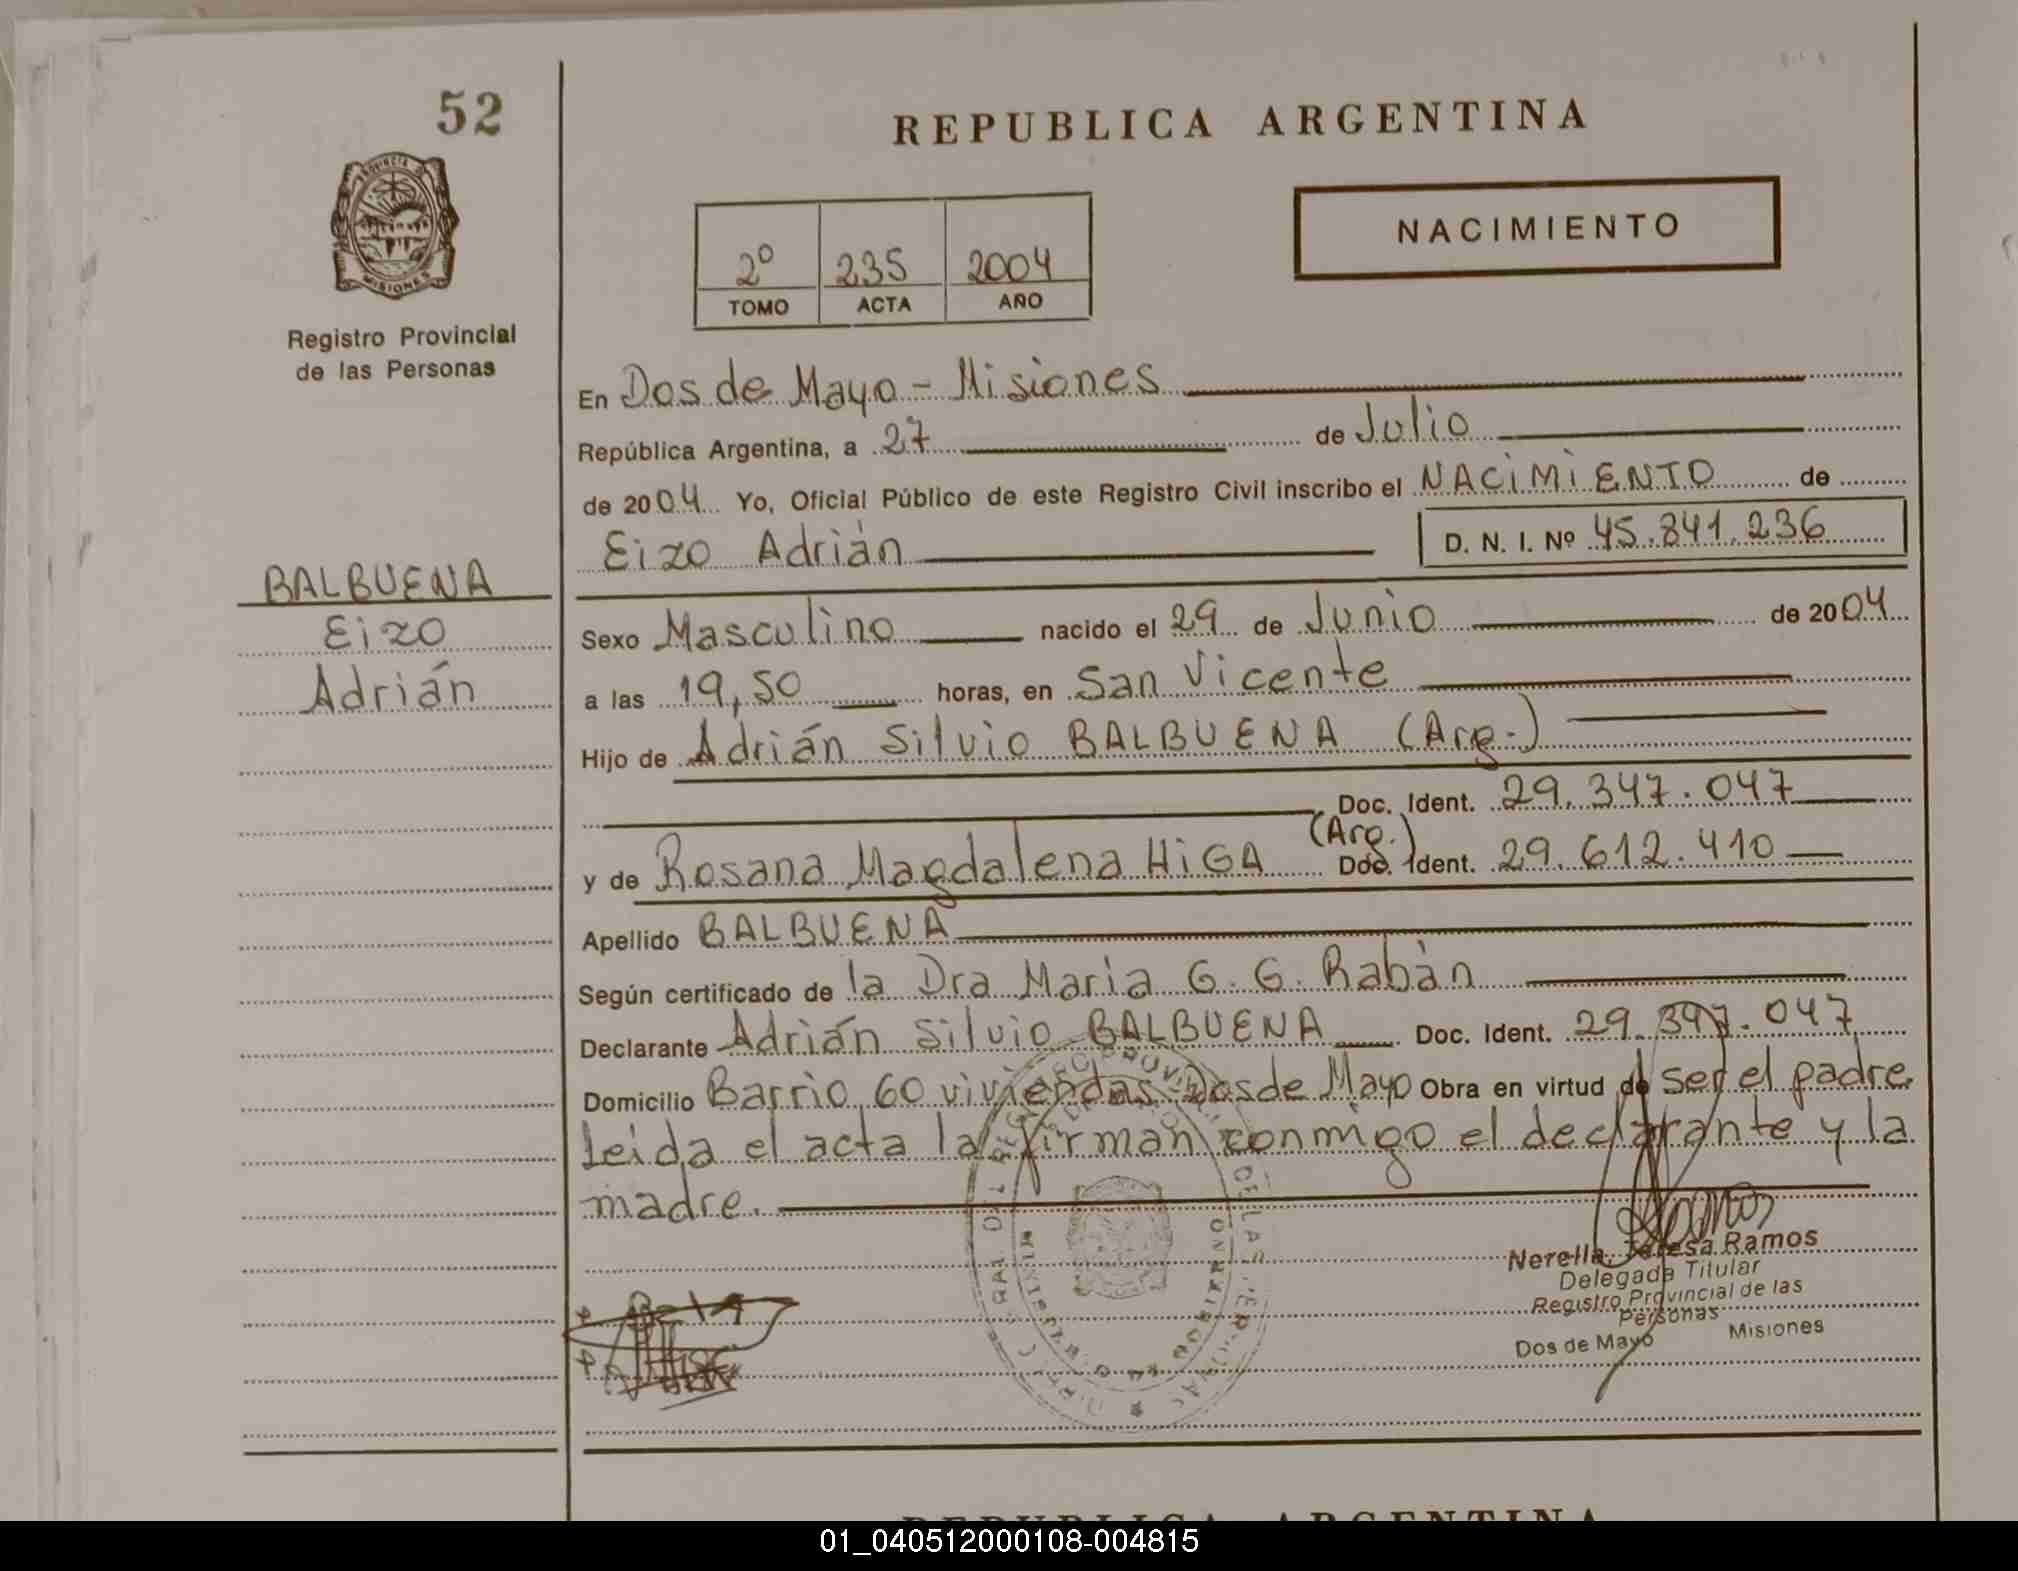 52
REPUBLICA ARGENTINA
PROVINCIA DE
MISIONES
Registro Provincial
de las Personas
NACIMIENTO
2º 235 2004
TOMO ACTA AÑO
En Dos de Mayo - Misiones
República Argentina, a 27 de Julio
de 2004 Yo, Oficial Público de este Registro Civil inscribo el NACIMIENTO de
Eizo Adrián D. N. I. Nº 45.841.236
BALBUENA
Eizo
Adrián
Sexo Masculino nacido el 29 de Junio de 2004
a las 19,50 horas, en San Vicente
Hijo de Adrián Silvio BALBUENA (Arg.)
Doc. Ident. 29.347.047
y de Rosana Magdalena HIGA (Arg.) Doc. Ident. 29.612.410
Apellido BALBUENA
Según certificado de la Dra Maria G. G. Rabán
Declarante Adrián Silvio BALBUENA Doc. Ident. 29.347.047
Domicilio Barrio 60 viviendas Dos de Mayo Obra en virtud de ser el padre
Leida el acta la firman conmigo el declarante y la
madre.
Nerella Teresa Ramos
Delegada Titular
Registro Provincial de las
Personas
Dos de Mayo Misiones
REPUBLICA ARGENTINA
01_040512000108-004815